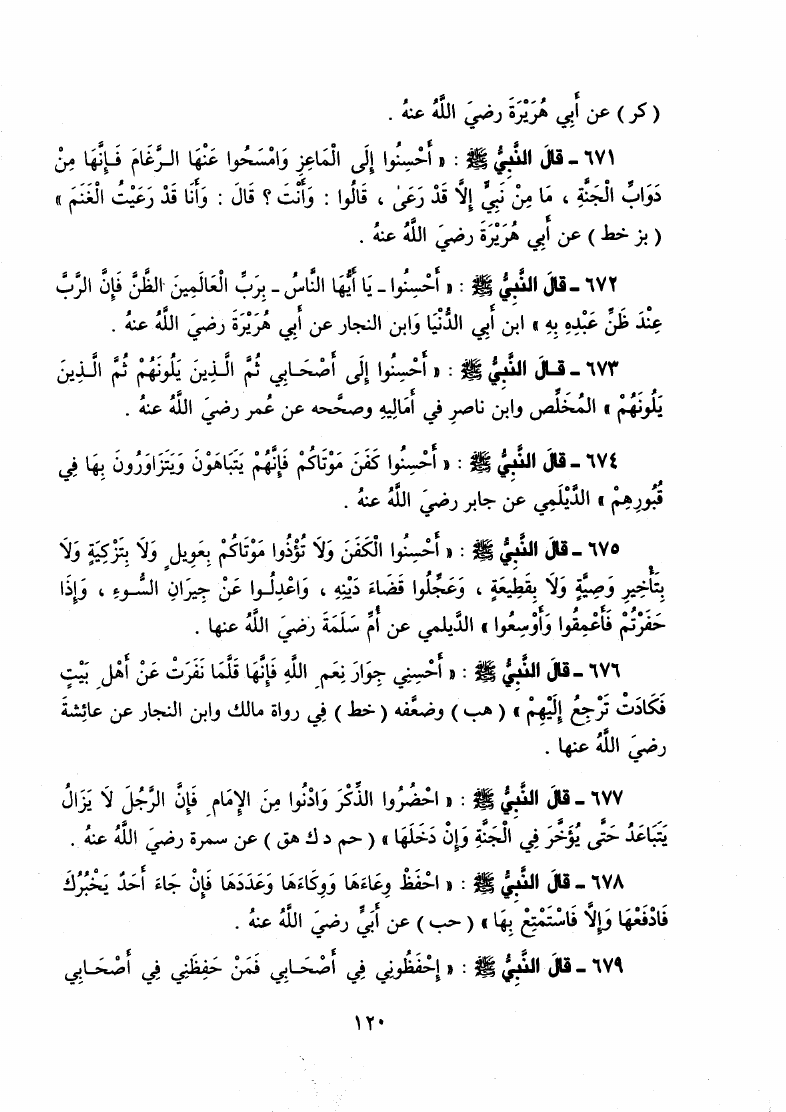 (كر) عن أَبي هُرَيْرَةَ رضيَ اللَّهُ عنهُ .
٦٧١ - قالَ النَّبِيُّ ﷺ : « أَحْسِنُوا إِلَى الْمَاعِزِ وَامْسَحُوا عَنْهَا الـرَّغَامَ فَـإِنَّهَا مِنْ
دَوَابِّ الْجَنَّةِ ، مَا مِنْ نَبِيٍّ إِلَّا قَدْ رَعَىٰ ، قَالُوا : وَأَنْتَ ؟ قَالَ : وَأَنَا قَدْ رَعَيْتُ الْغَنَمَ »
( بز خط ) عن أَبي هُرَيْرَةَ رضيَ اللَّهُ عنهُ .
٦٧٢ - قالَ النَّبِيُّ ﷺ : « أَحْسِنُوا - يَا أَيُّهَا النَّاسُ - بِرَبِّ الْعَالَمِينَ الظَّنَّ فَإِنَّ الرَّبَّ
عِنْدَ ظَنِّ عَبْدِهِ بِهِ » ابن أَبي الدُّنْيَا وَابن النجار عن أَبي هُرَيْرَةَ رضيَ اللَّهُ عنهُ .
٦٧٣ - قـالَ النَّبِيُّ ﷺ : « أَحْسِنُوا إِلَى أَصْحَـابِي ثُمَّ الَّـذِينَ يَلُونَهُمْ ثُمَّ الَّـذِينَ
يَلُونَهُمْ » المُخَلِّص وابن ناصرٍ في أَمَالِيهِ وصحَّحه عن عُمر رضيَ اللَّهُ عنهُ .
٦٧٤ - قالَ النَّبِيُّ ﷺ : « أَحْسِنُوا كَفَنَ مَوْتَاكُمْ فَإِنَّهُمْ يَتَبَاهَوْنَ وَيَتَزَاوَرُونَ بِهَا فِي
قُبُورِهِمْ » الدَّيْلَمِي عن جابر رضيَ اللَّهُ عنهُ .
٦٧٥ - قالَ النَّبِيُّ ﷺ : « أَحْسِنُوا الْكَفَنَ وَلَا تُؤْذُوا مَوْتَاكُمْ بِعَوِيلٍ وَلَا بِتَزْكِيَةٍ وَلَا
بِتَأْخِيرِ وَصِيَّةٍ وَلَا بِقَطِيعَةٍ ، وَعَجِّلُوا قَضَاءَ دَيْنِهِ ، وَاعْدِلُـوا عَنْ جِيرَانِ السُّـوءِ ، وَإِذَا
حَفَرْتُمْ فَأَعْمِقُوا وَأَوْسِعُوا » الدَّيلمي عن أُمِّ سَلَمَةَ رضيَ اللَّهُ عنها .
٦٧٦ - قالَ النَّبِيُّ ﷺ : « أَحْسِنِي جِوَارَ نِعَمِ اللَّهِ فَإِنَّهَا قَلَّمَا نَفَرَتْ عَنْ أَهْلِ بَيْتٍ
فَكَادَتْ تَرْجِعُ إِلَيْهِمْ » ( هب ) وضعَّفه ( خط ) في رواة مالك وابن النجار عن عائِشةَ
رضيَ اللَّهُ عنها .
٦٧٧ - قالَ النَّبِيُّ ﷺ : « احْضُرُوا الذِّكْرَ وَادْنُوا مِنَ الإِمَامِ فَإِنَّ الرَّجُلَ لَا يَزَالُ
يَتَبَاعَدُ حَتَّى يُؤَخَّرَ فِي الْجَنَّةِ وَإِنْ دَخَلَهَا » ( حم د ك هق ) عن سمرة رضيَ اللَّهُ عنهُ .
٦٧٨ - قالَ النَّبِيُّ ﷺ : « احْفَظْ وِعَاءَهَا وَوِكَاءَهَا وَعَدَدَهَا فَإِنْ جَاءَ أَحَدٌ يُخْبِرُكَ
فَادْفَعْهَا وَإِلَّا فَاسْتَمْتِعْ بِهَا » ( حب ) عن أُبَيٍّ رضيَ اللَّهُ عنهُ .
٦٧٩ - قالَ النَّبِيُّ ﷺ : « إِحْفَظُونِي فِي أَصْحَـابِي فَمَنْ حَفِظَنِي فِي أَصْحَـابِي
١٢٠